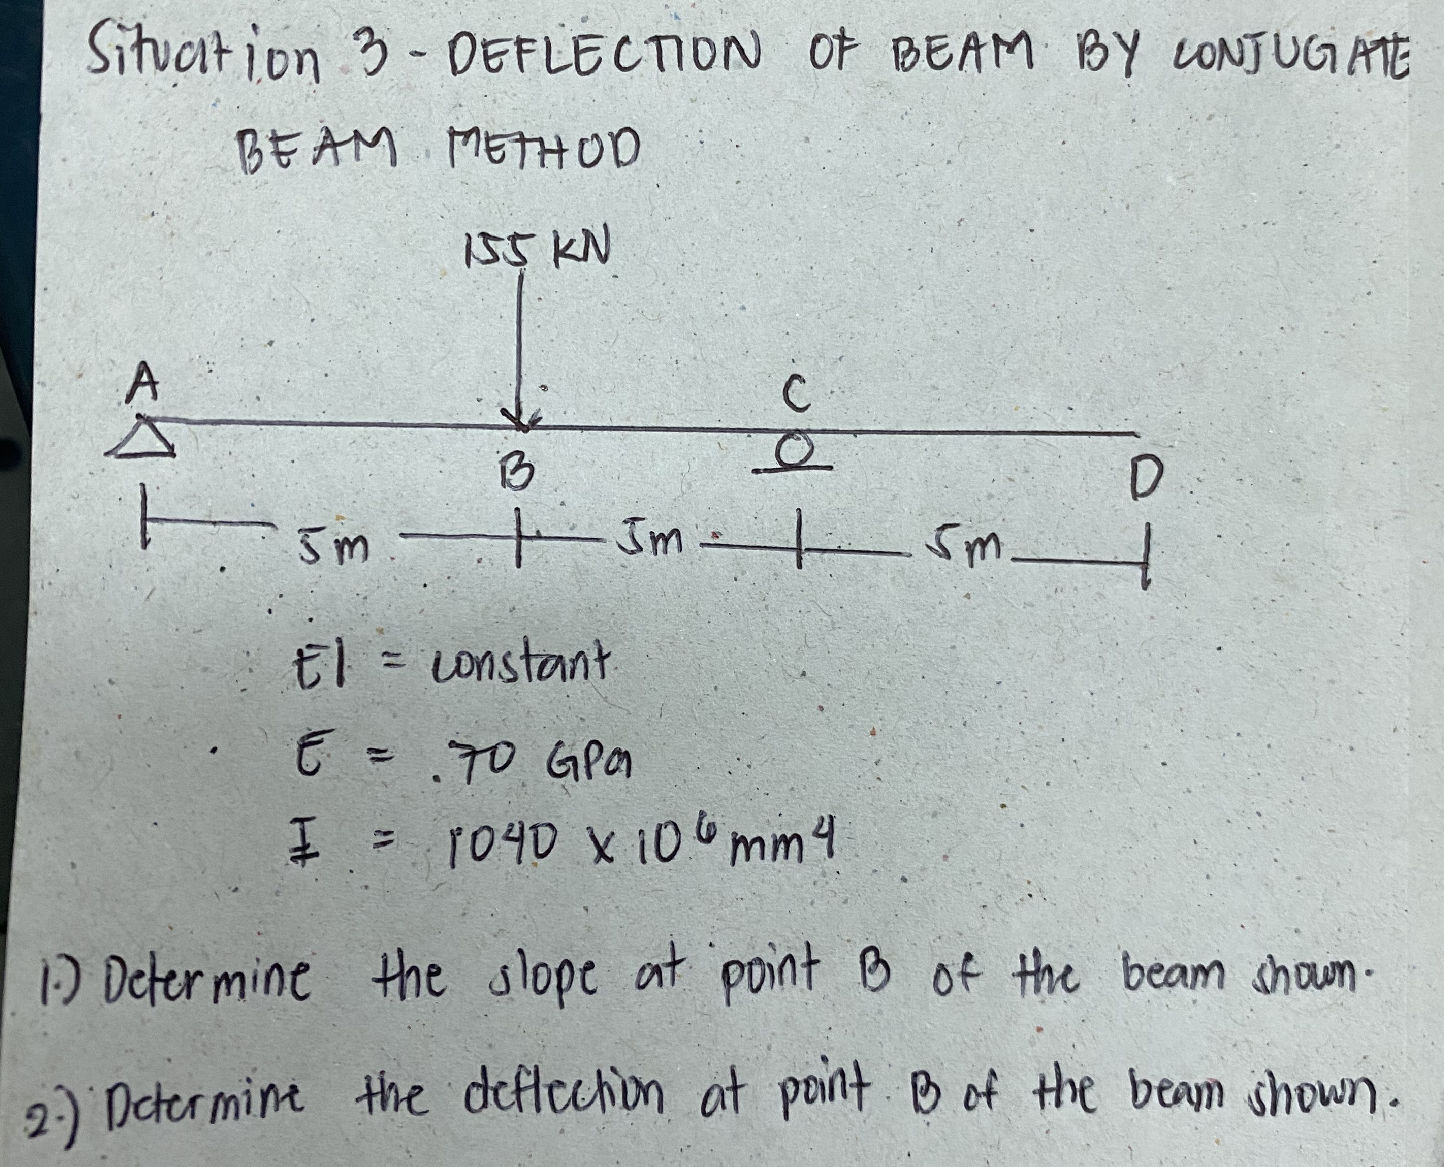 Situation 3 - DEFLECTION OF BEAM BY CONJUGATE
BEAM METHOD
155 KN
A
C
B
D
5m 5m 5m
EI = constant
E = .70 GPa
I = 1040 x 10⁶ mm4
1.) Determine the slope at point B of the beam shown.
2.) Determine the deflection at point B of the beam shown.